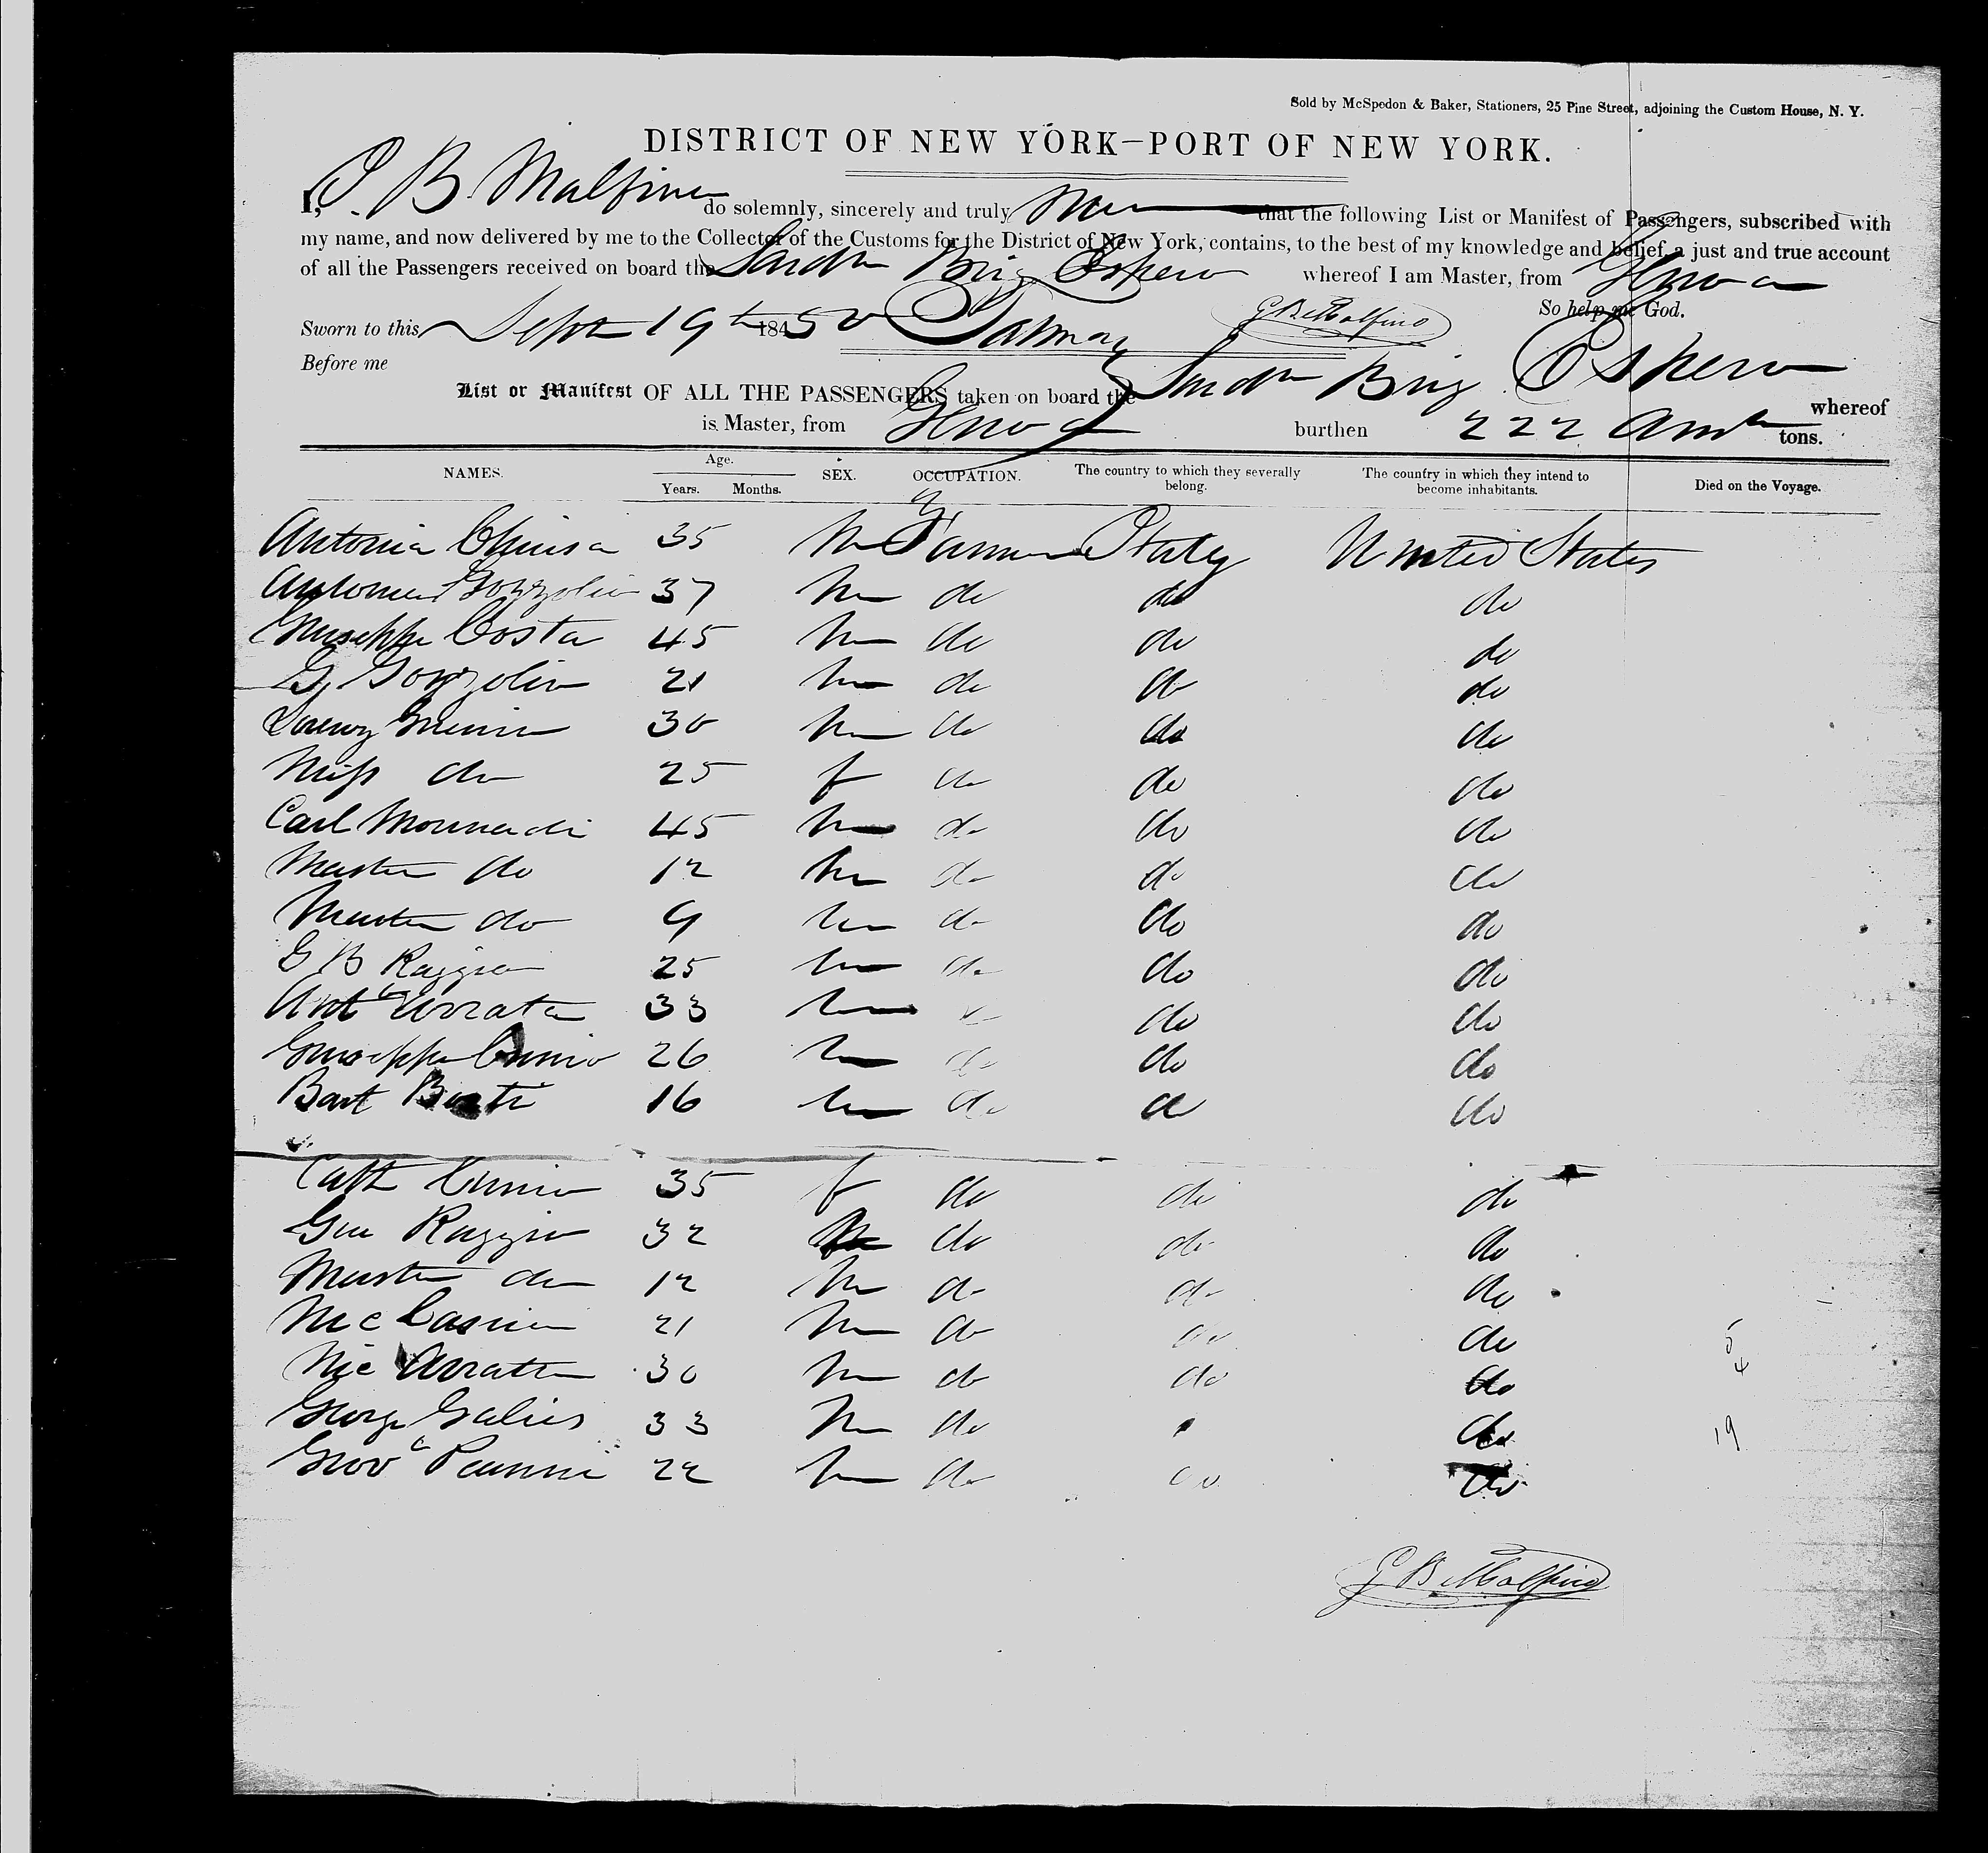 Sold by McSpedon & Baker, Stationers, 25 Pine Street, adjoining the Custom House, N. Y.
DISTRICT OF NEW YORK—PORT OF NEW YORK.
I, G. B. Malfino do solemnly, sincerely and truly that the following List or Manifest of Passengers, subscribed with
my name, and now delivered by me to the Collector of the Customs for the District of New York, contains, to the best of my knowledge and belief, a just and true account
of all the Passengers received on board the Sardn Brig Espero whereof I am Master, from Genoa
So help me God.
Sworn to this Sept 19th 1850 G B Malfino
Before me
List or Manifest OF ALL THE PASSENGERS taken on board the Sardn Brig Espero whereof
is Master, from Genoa burthen 222 tons.
NAMES. Age. Years. Months. SEX. OCCUPATION. The country to which they severally belong. The country in which they intend to become inhabitants. Died on the Voyage.
Antonia Chiusa 35 M Farmer Italy United States
37 M do do do
Giuseppe Costa 45 M do do do
G Gozzolin 21 M do do do
30 M do do do
Miss do 25 f do do do
Carl 45 M do do do
Master do 12 M do do do
Master do 9 M do do do
G B Raggio 25 M do do do
Ant Arrata 33 M do do
Giuseppe Cunio 26 M do do do
Bart 16 M do do do
Cath Cunio 35 f do do do
Giu Raggio 32 M do do do
Master do 12 M do do do
21 M do do do
Nic Arratta 30 M do do do
George 33 M do do
22 M do do do
5
4
19
G B Malfino